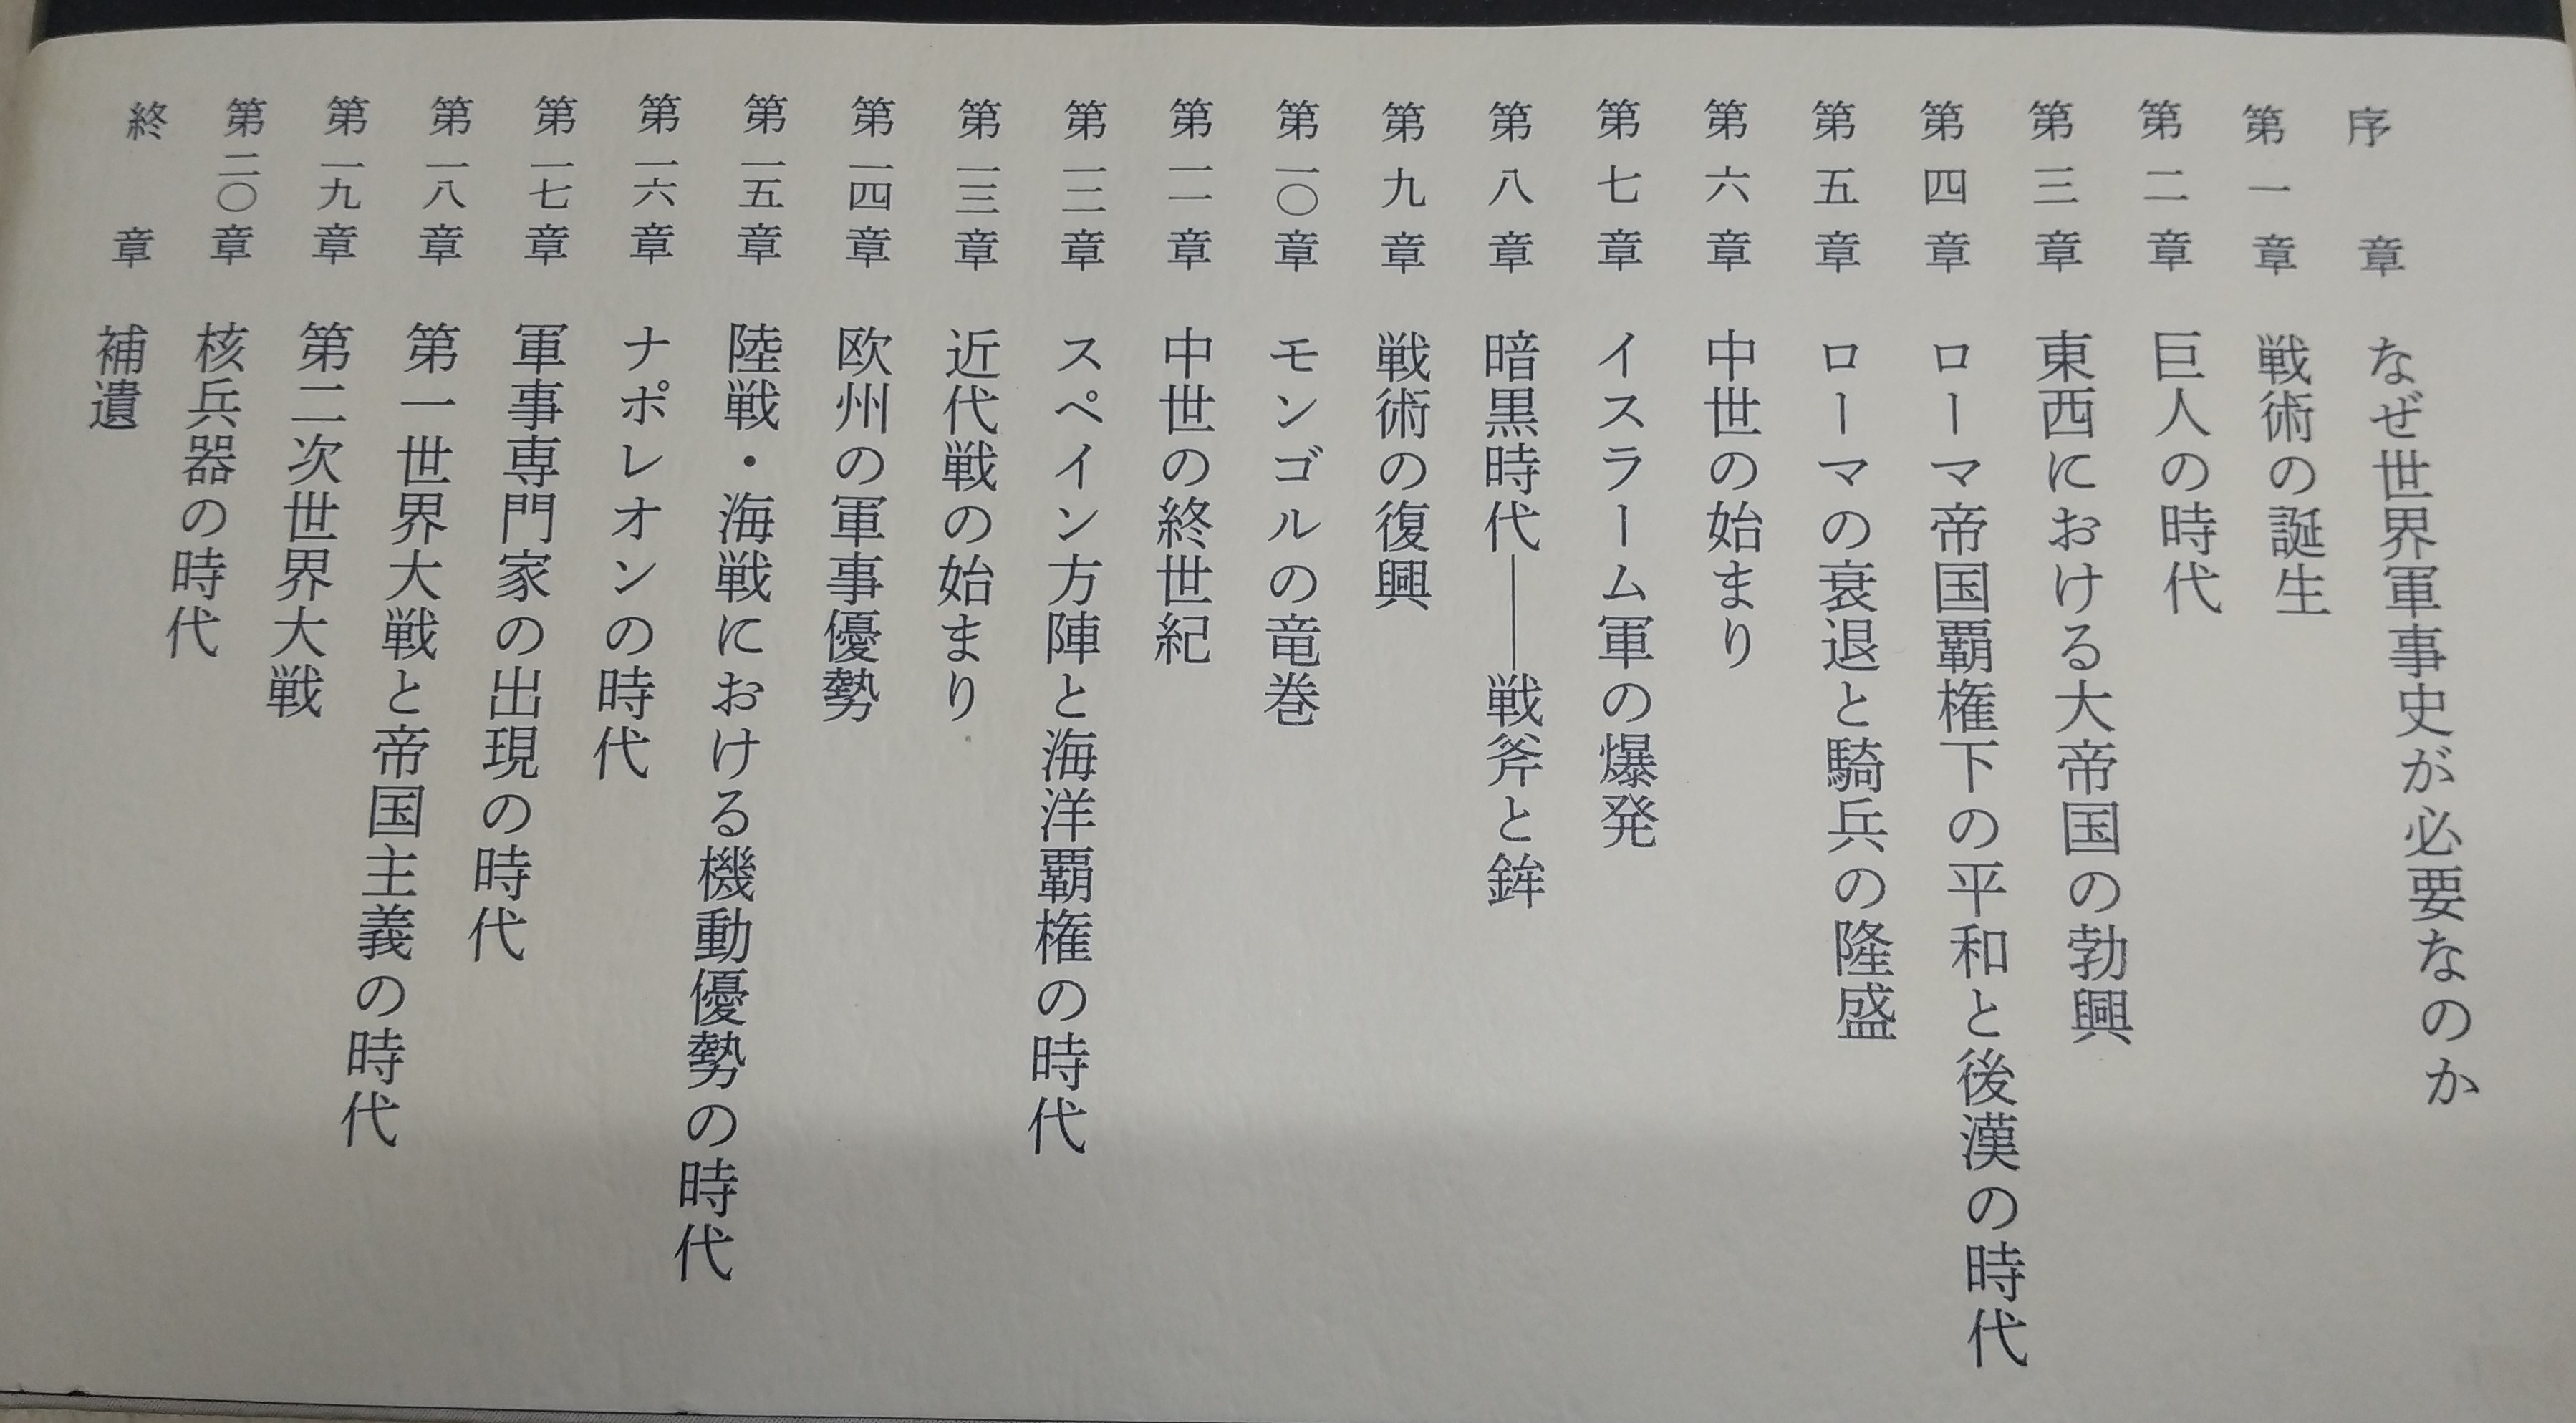 序章 なぜ世界軍事史が必要なのか
第一章 戦術の誕生
第二章 巨人の時代
第三章 東西における大帝国の勃興
第四章 ローマ帝国覇権下の平和と後漢の時代
第五章 ローマの衰退と騎兵の隆盛
第六章 中世の始まり
第七章 イスラーム軍の爆発
第八章 暗黒時代――戦斧と鉾
第九章 戦術の復興
第一〇章 モンゴルの竜巻
第一一章 中世の終世紀
第一二章 スペイン方陣と海洋覇権の時代
第一三章 近代戦の始まり
第一四章 欧州の軍事優勢
第一五章 陸戦・海戦における機動優勢の時代
第一六章 ナポレオンの時代
第一七章 軍事専門家の出現の時代
第一八章 第一世界大戦と帝国主義の時代
第一九章 第二次世界大戦
第二〇章 核兵器の時代
終章 補遺